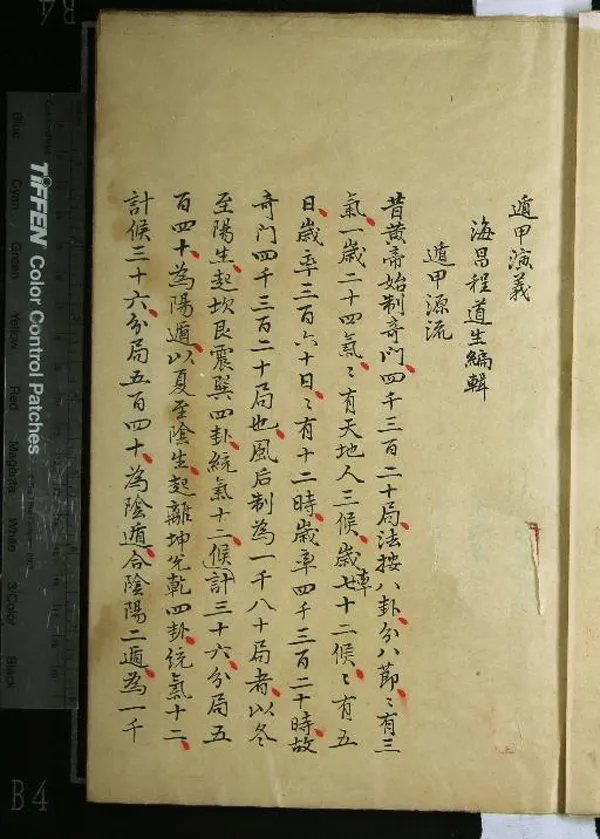 遁甲演義
海昌程道生編輯
遁甲源流
昔黃帝始制奇門四千三百二十局法按八卦分八節〻有三
氣一歲二十四氣〻有天地人三候歲率七十二候〻有五
日歲率三百六十日〻有十二時歲率四千三百二十時故
奇門四千三百二十局也風后制為一千八十局者以冬
至陽生起坎艮震巽四卦統氣十二候計三十六分局五
百四十為陽遁以夏至陰生起離坤兊乾四卦統氣十二
計候三十六分局五百四十為陰遁合陰陽二遁為一千
TIFFEN Color Control Patches
Blue Cyan Green Yellow Red Magenta White 3/Color Black
B4
B4